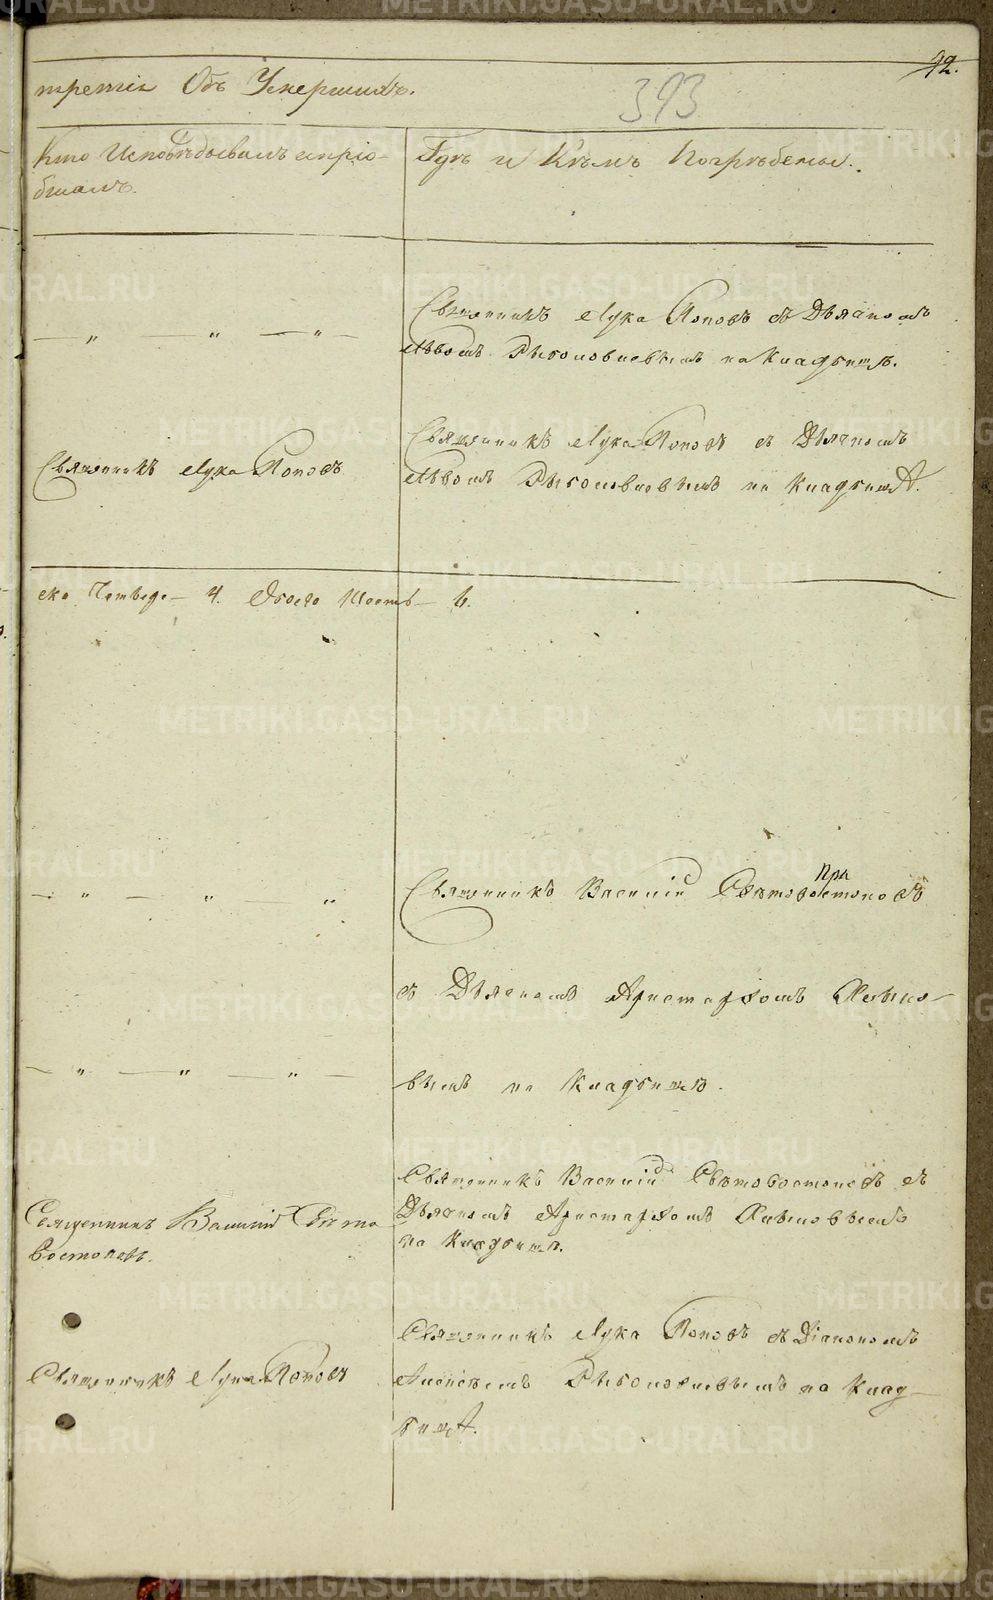 42.
третія Объ Умершихъ.
393
Кто Исповѣдывалъ и пріо-
бщалъ.
Гдѣ и Кѣмъ Погребены.
Священникъ Лука Поповъ съ Дьячкомъ
Львомъ на Кладбищѣ.
Священникъ Лука Поповъ
Священникъ Лука Поповъ съ Дьячкомъ
Львомъ на Кладбищѣ.
ска Четыре — 4. Обоего Шесть — 6.
Священникъ Василій Свѣтовостоковъ
при
съ Дьячкомъ Аристархомъ
вымъ на Кладбищѣ.
Священникъ Василій Свѣто
востоковъ.
Священникъ Василій Свѣтовостоковъ съ
Дьячкомъ Аристархомъ
на Кладбищѣ.
Священникъ Лука Поповъ
Священникъ Лука Поповъ съ Діакономъ
Алексѣемъ на Клад-
бищѣ.
METRIKI.GASO-URAL.RU